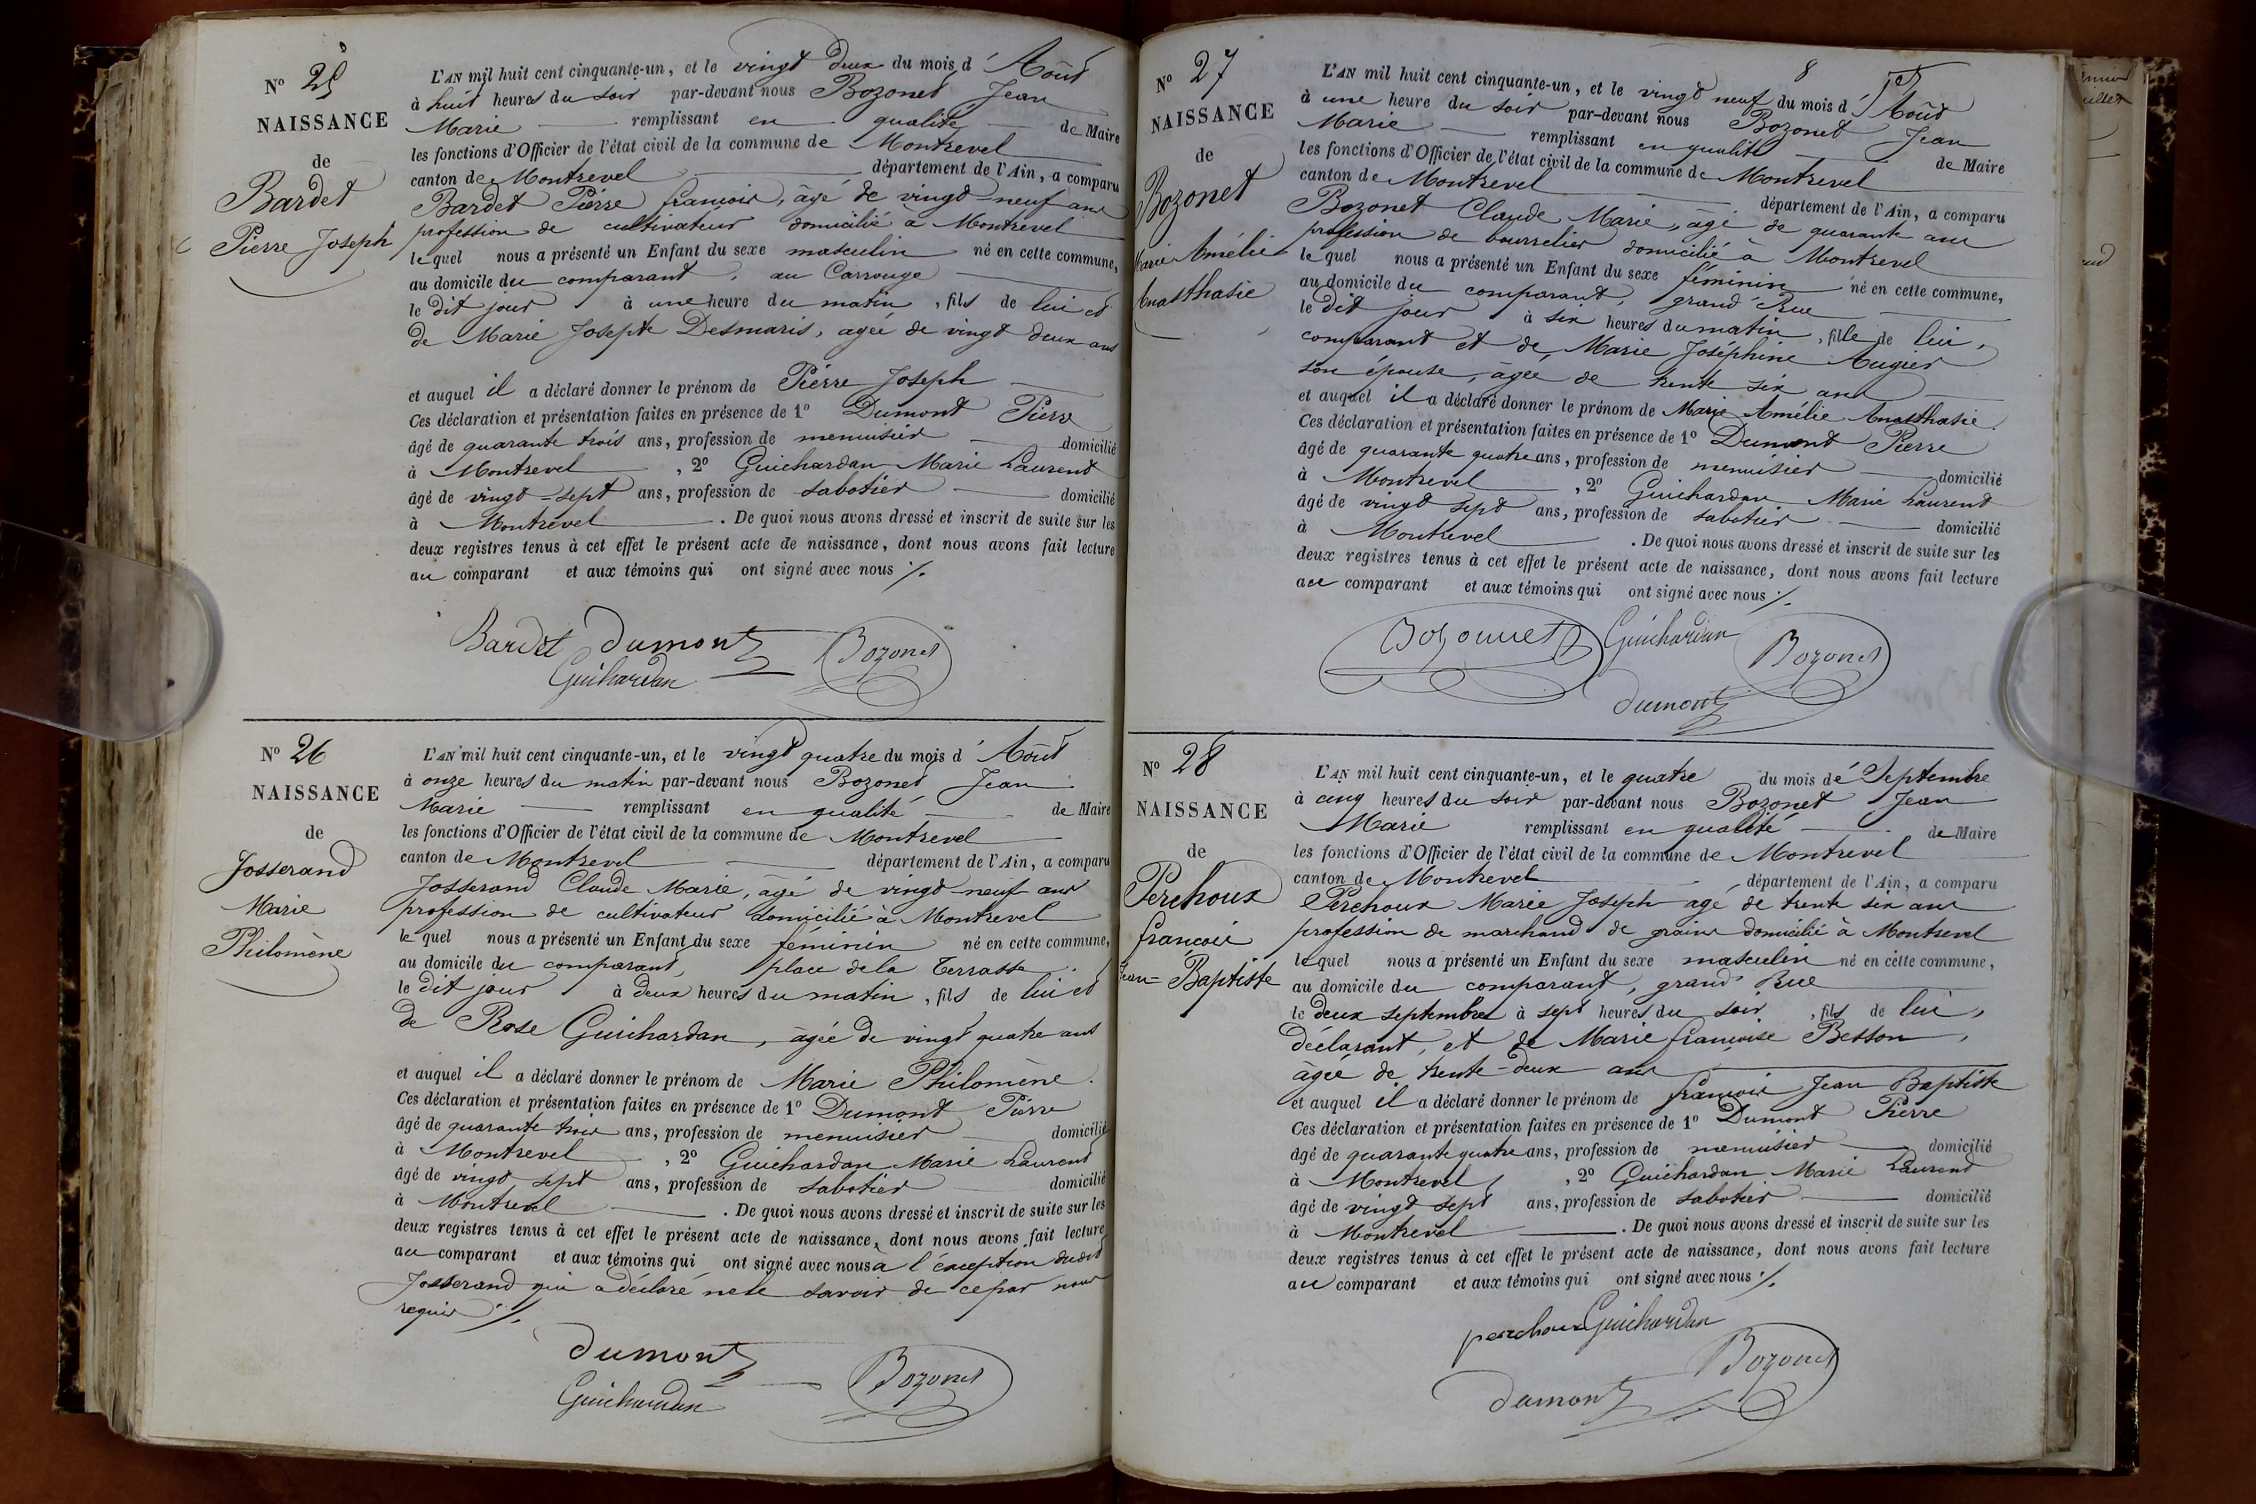 Nº 25
NAISSANCE
de
Bardet
Pierre Joseph
L'AN mil huit cent cinquante-un, et le vingt deux du mois d'Août
à huit heures du soir par-devant nous Bozonet Jean
Marie remplissant en qualité de Maire
les fonctions d'Officier de l'état civil de la commune de Montrevel
canton de Montrevel département de l'Ain, a comparu
Bardet Pierre françois, âgé de vingt neuf ans
profession de cultivateur domicilié à Montrevel
lequel nous a présenté un Enfant du sexe masculin né en cette commune,
au domicile du comparant, au Carrouge
le dit jour à une heure du matin, fils de lui et
de Marie Josepte Desmaris, agée de vingt deux ans
et auquel il a déclaré donner le prénom de Pierre Joseph
Ces déclaration et présentation faites en présence de 1º Dumont Pierre
âgé de quarante trois ans, profession de menuisier domicilié
à Montrevel, 2º Guichardan Marie Laurent
âgé de vingt-sept ans, profession de sabotier domicilié
à Montrevel. De quoi nous avons dressé et inscrit de suite sur les
deux registres tenus à cet effet le présent acte de naissance, dont nous avons fait lecture
au comparant et aux témoins qui ont signé avec nous ./.
Bardet Dumont Bozonet
Guichardan
Nº 26
NAISSANCE
de
Josserand
Marie
Philomène
L'AN mil huit cent cinquante-un, et le vingt quatre du mois d'Août
à onze heures du matin par-devant nous Bozonet Jean
Marie remplissant en qualité de Maire
les fonctions d'Officier de l'état civil de la commune de Montrevel
canton de Montrevel département de l'Ain, a comparu
Josserand Claude Marie, âgé de vingt neuf ans
profession de cultivateur domicilié à Montrevel
lequel nous a présenté un Enfant du sexe féminin né en cette commune,
au domicile du comparant, place de la Terrasse
le dit jour à deux heures du matin, fils de lui et
de Rose Guichardan, âgée de vingt quatre ans
et auquel il a déclaré donner le prénom de Marie Philomène.
Ces déclaration et présentation faites en présence de 1º Dumont Pierre
âgé de quarante trois ans, profession de menuisier domicilié
à Montrevel, 2º Guichardan Marie Laurent
âgé de vingt sept ans, profession de sabotier domicilié
à Montrevel. De quoi nous avons dressé et inscrit de suite sur les
deux registres tenus à cet effet le présent acte de naissance, dont nous avons fait lecture
au comparant et aux témoins qui ont signé avec nous à l'exception dudit
Josserand qui a déclaré ne le savoir de ce par nous
requis ./.
Dumont Bozonet
Guichardan
8
Nº 27
NAISSANCE
de
Bozonet
Marie Amélie
Anasthasie
L'AN mil huit cent cinquante-un, et le vingt neuf du mois d'Août
à une heure du soir par-devant nous Bozonet Jean
Marie remplissant en qualité de Maire
les fonctions d'Officier de l'état civil de la commune de Montrevel
canton de Montrevel département de l'Ain, a comparu
Bozonet Claude Marie, âgé de quarante ans
profession de bourrelier domicilié à Montrevel
lequel nous a présenté un Enfant du sexe féminin né en cette commune,
au domicile du comparant, grand'Rue
le dit jour à six heures du matin, fille de lui,
comparant et de Marie Joséphine Augier
son épouse, âgée de trente six ans
et auquel il a déclaré donner le prénom de Marie Amélie Anasthasie.
Ces déclaration et présentation faites en présence de 1º Dumont Pierre
âgé de quarante quatre ans, profession de menuisier domicilié
à Montrevel, 2º Guichardan Marie Laurent
âgé de vingt sept ans, profession de sabotier domicilié
à Montrevel. De quoi nous avons dressé et inscrit de suite sur les
deux registres tenus à cet effet le présent acte de naissance, dont nous avons fait lecture
au comparant et aux témoins qui ont signé avec nous ./.
Bozonnet Guichardan Bozonet
Dumont
Nº 28
NAISSANCE
de
Perchoux
françois
Jean-Baptiste
L'AN mil huit cent cinquante-un, et le quatre du mois de Septembre
à cinq heures du soir par-devant nous Bozonet Jean
Marie remplissant en qualité de Maire
les fonctions d'Officier de l'état civil de la commune de Montrevel
canton de Montrevel département de l'Ain, a comparu
Perchoux Marie Joseph agé de trente six ans
profession de marchand de grains domicilié à Montrevel
lequel nous a présenté un Enfant du sexe masculin né en cette commune,
au domicile du comparant, grand'Rue
le deux septembre à sept heures du soir, fils de lui,
déclarant, et de Marie françoise Besson,
âgée de trente-deux ans
et auquel il a déclaré donner le prénom de françois Jean Baptiste
Ces déclaration et présentation faites en présence de 1º Dumont Pierre
âgé de quarante quatre ans, profession de menuisier domicilié
à Montrevel, 2º Guichardan Marie Laurent
âgé de vingt sept ans, profession de sabotier domicilié
à Montrevel. De quoi nous avons dressé et inscrit de suite sur les
deux registres tenus à cet effet le présent acte de naissance, dont nous avons fait lecture
au comparant et aux témoins qui ont signé avec nous ./.
perchoux Guichardan
Dumont Bozonet